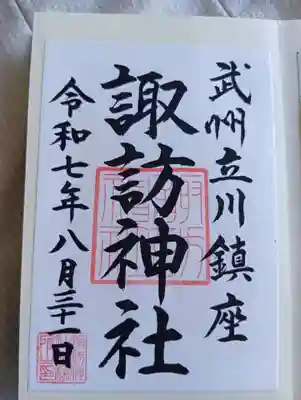 武州立川鎮座
諏訪神社
令和七年八月三十一日